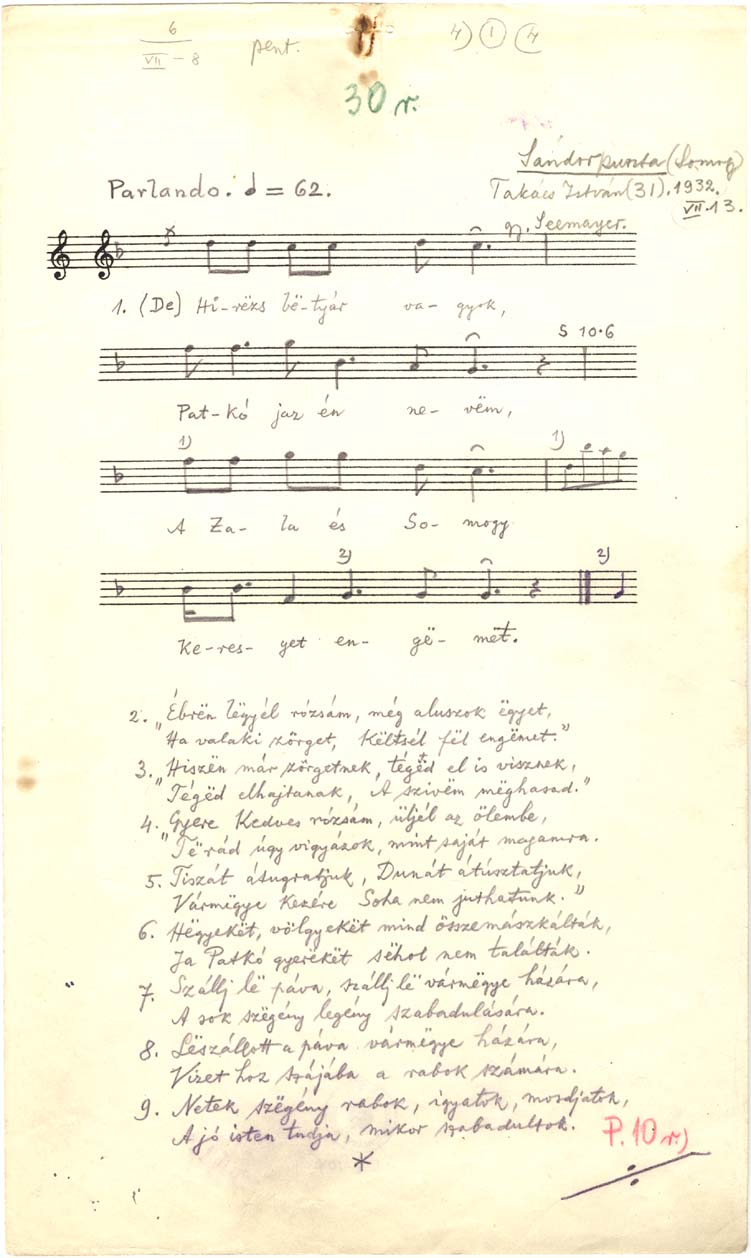 6
VII – 8
pent.
4) 1 (4
30 r.
Sándorpuszta (Somogy)
Parlando. = 62.
Takács István (31). 1932.
VII. 13.
gy. Seemayer.
1. (De) Hi-rëzs bë-tyár va-gyok,
5 10·6
Pat-kó jaz én ne-vëm,
1) 1)
A Za-la és So-mogy
2) 2)
Ke-res-yet en-gë-mët.
2. „Ébrën lëgyél rózsám, még aluszok ëgyet,
Ha valaki zörget, Këltsél fël engëmet.”
3. „Hiszën már zörgetnek, tégëd el is visznek,
"Tégëd elhajtanak, A szivëm mëghasad."
4. „Gyere Kedves rózsám, üljél az ölembe,
Të rád úgy vigyázok, mint saját magamra.
5. Tiszát átugratjuk, Dunát átúsztatjuk,
Vármëgye kezére Soha nem juthatunk."
6. Hëgyekët, völgyekët mind összemászkálták,
Ja Patkó gyerëkët sëhol nem találták.
7. Szállj lë páva, szállj lë vármëgye házára,
A sok szëgény legény szabadulására.
8. Lëszállott a páva vármëgye házára,
Vizet hoz szájába a rabok számára.
9. Netek szëgény rabok, igyatok, mosdjatok,
A jó isten tudja, mikor szabadultok.
P. 10 r)